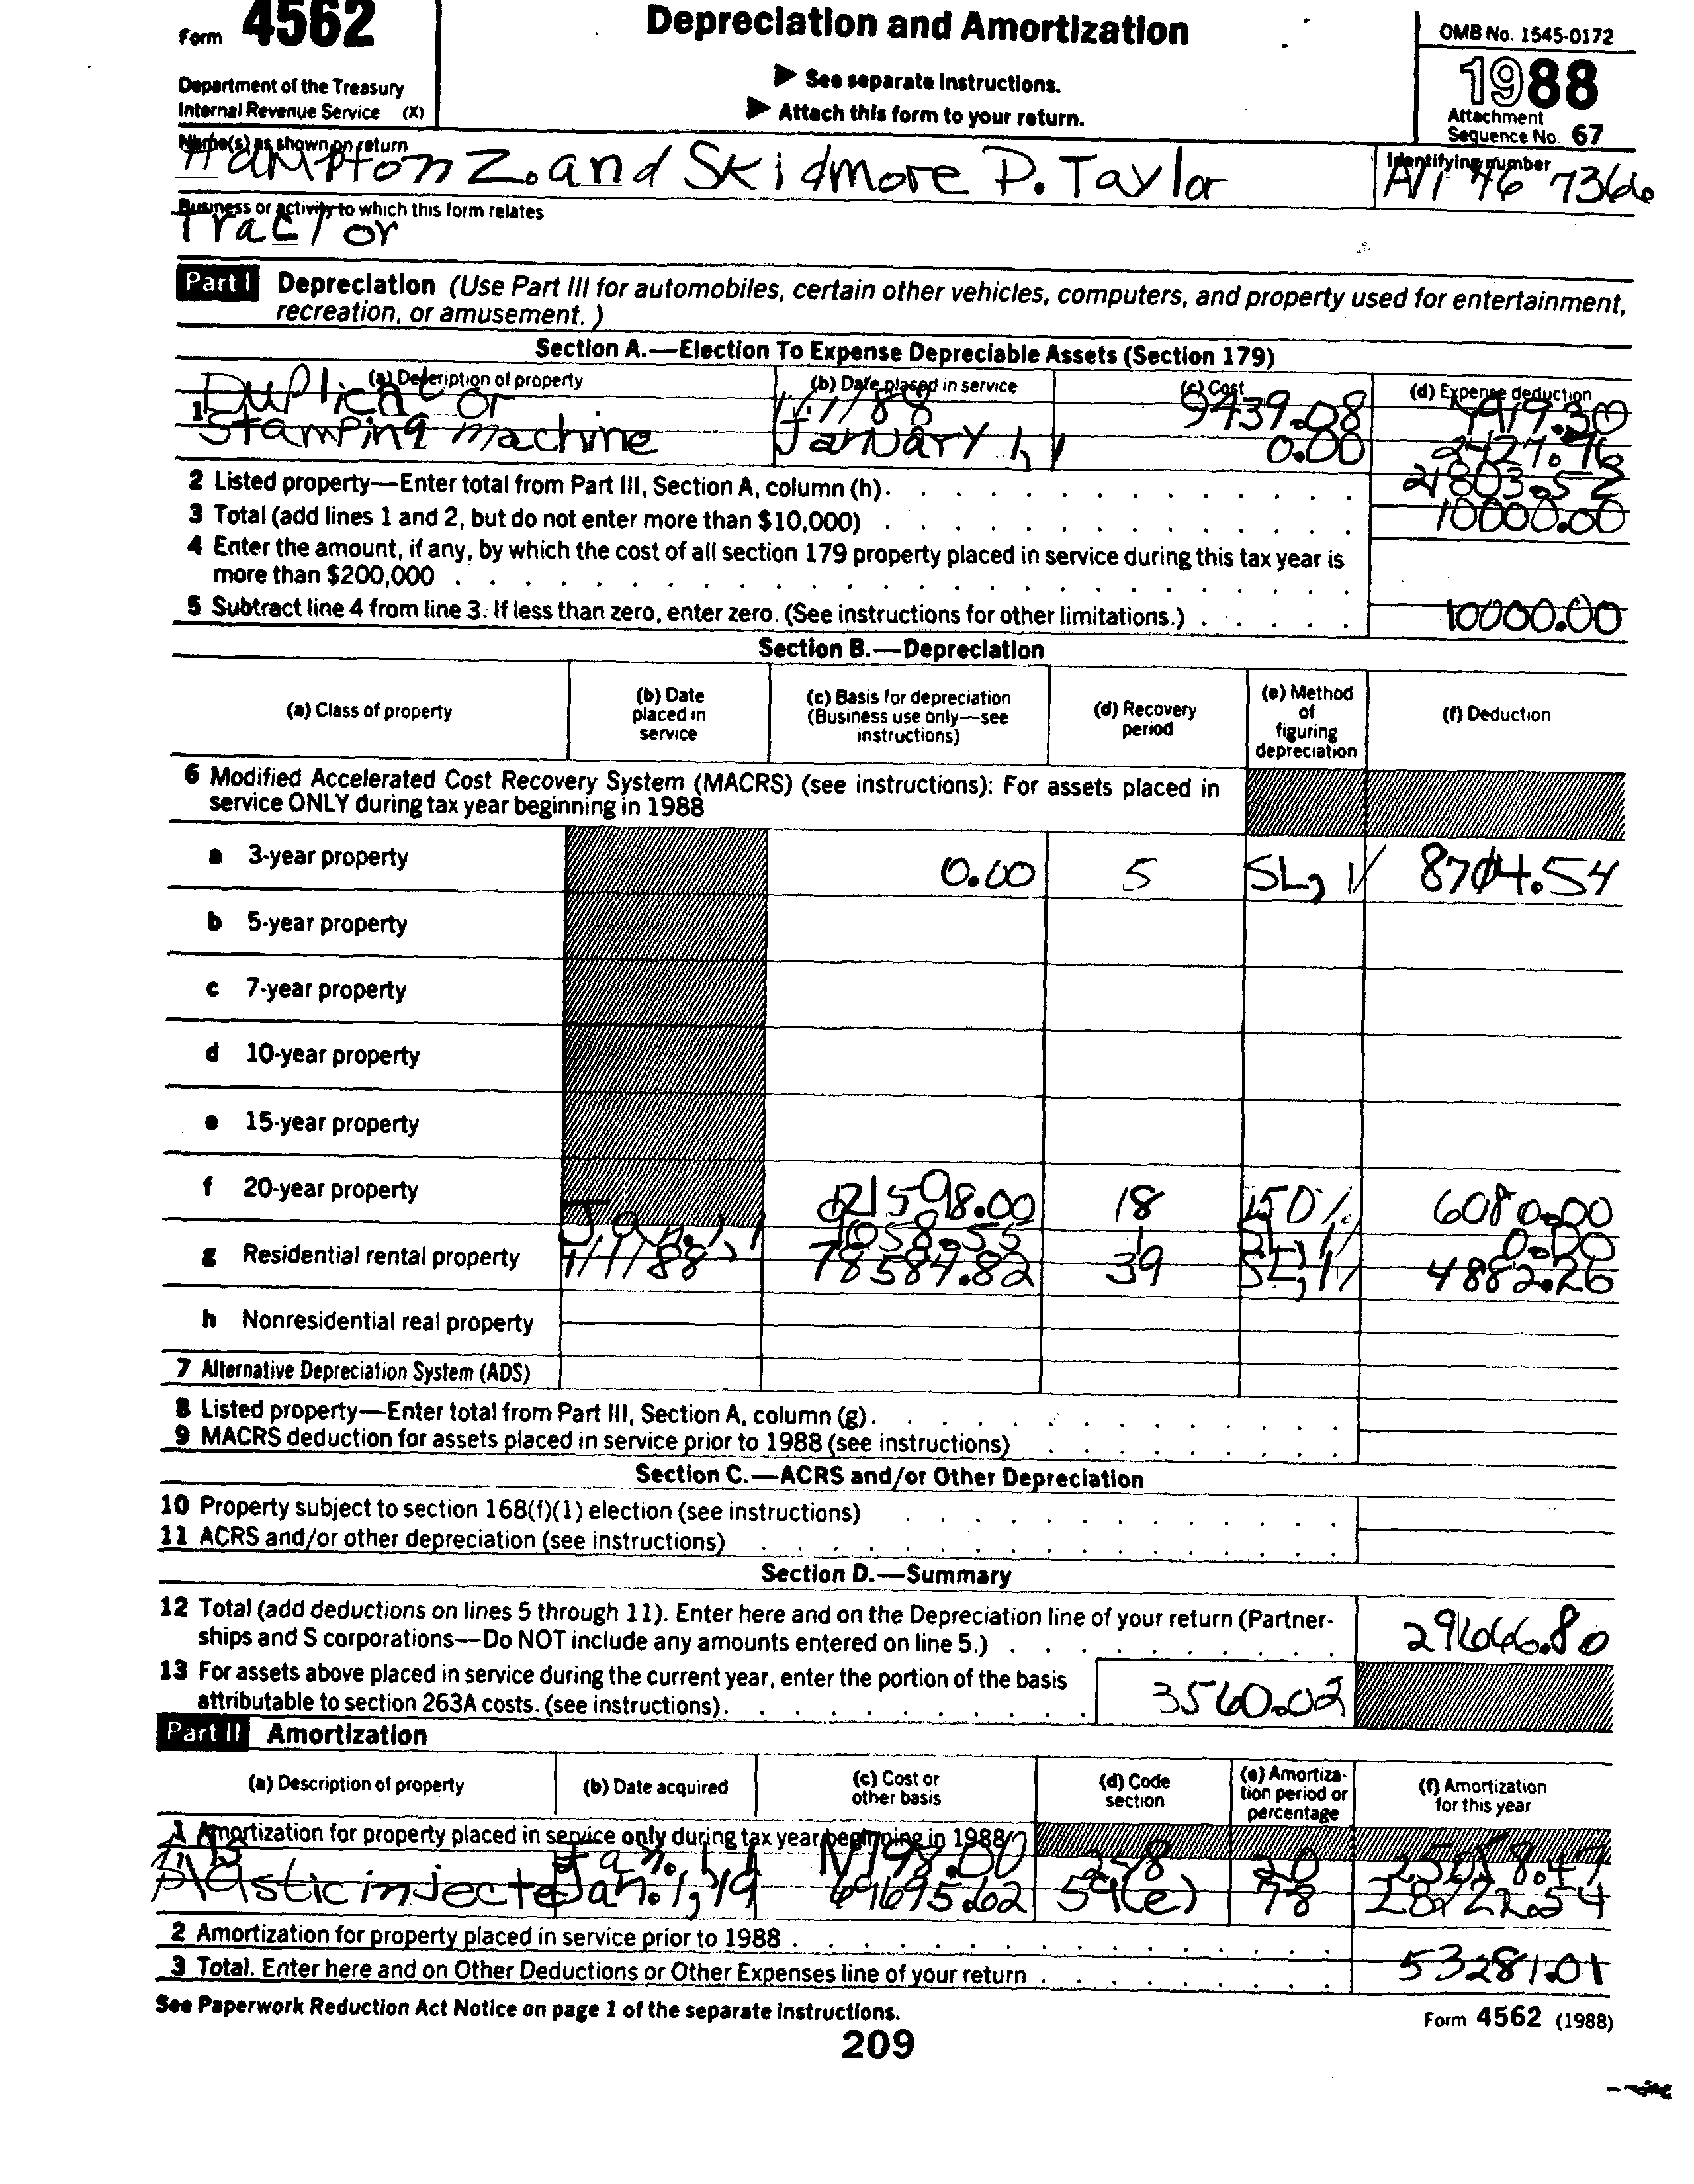 Form 4562
Department of the Treasury
Internal Revenue Service (X)
Depreciation and Amortization
▶ See separate Instructions.
▶ Attach this form to your return.
OMB No. 1545-0172
1988
Attachment
Sequence No. 67
Name(s) as shown on return
Hampton Z. and Skidmore P. Taylor
Identifying number
46 7366
Business or activity to which this form relates
Tractor
Part I Depreciation (Use Part III for automobiles, certain other vehicles, computers, and property used for entertainment,
recreation, or amusement.)
Section A.—Election To Expense Depreciable Assets (Section 179)
(a) Description of property (b) Date placed in service (c) Cost (d) Expense deduction
1 Duplicator 1/1/88 9439.08 4919.30
Stamping machine January 1, 1 0.00 2427.76
2 Listed property—Enter total from Part III, Section A, column (h). 21803.52
3 Total (add lines 1 and 2, but do not enter more than $10,000) 10000.00
4 Enter the amount, if any, by which the cost of all section 179 property placed in service during this tax year is
more than $200,000
5 Subtract line 4 from line 3. If less than zero, enter zero. (See instructions for other limitations.) 10000.00
Section B.—Depreciation
(a) Class of property (b) Date placed in service (c) Basis for depreciation (Business use only—see instructions) (d) Recovery period (e) Method of figuring depreciation (f) Deduction
6 Modified Accelerated Cost Recovery System (MACRS) (see instructions): For assets placed in
service ONLY during tax year beginning in 1988
a 3-year property 0.00 5 SL, 1/ 8704.54
b 5-year property
c 7-year property
d 10-year property
e 15-year property
f 20-year property 21598.00 18 150% 6080.00
Jan. 1, 1 1058.55 1 SL, 1/ 0.00
g Residential rental property 1/1/88 78584.82 39 SL, 1/ 4882.26
h Nonresidential real property
7 Alternative Depreciation System (ADS)
8 Listed property—Enter total from Part III, Section A, column (g).
9 MACRS deduction for assets placed in service prior to 1988 (see instructions)
Section C.—ACRS and/or Other Depreciation
10 Property subject to section 168(f)(1) election (see instructions)
11 ACRS and/or other depreciation (see instructions)
Section D.—Summary
12 Total (add deductions on lines 5 through 11). Enter here and on the Depreciation line of your return (Partner-
ships and S corporations—Do NOT include any amounts entered on line 5.) 29666.80
13 For assets above placed in service during the current year, enter the portion of the basis
attributable to section 263A costs. (see instructions). 3560.02
Part II Amortization
(a) Description of property (b) Date acquired (c) Cost or other basis (d) Code section (e) Amortization period or percentage (f) Amortization for this year
1 Amortization for property placed in service only during tax year beginning in 1988
Jan. 1, 1 258 20 25058.47
Plastic injecte Jan. 1, 19 69695.62 59(e) 78 28222.54
2 Amortization for property placed in service prior to 1988
3 Total. Enter here and on Other Deductions or Other Expenses line of your return 53281.01
See Paperwork Reduction Act Notice on page 1 of the separate instructions.
Form 4562 (1988)
209